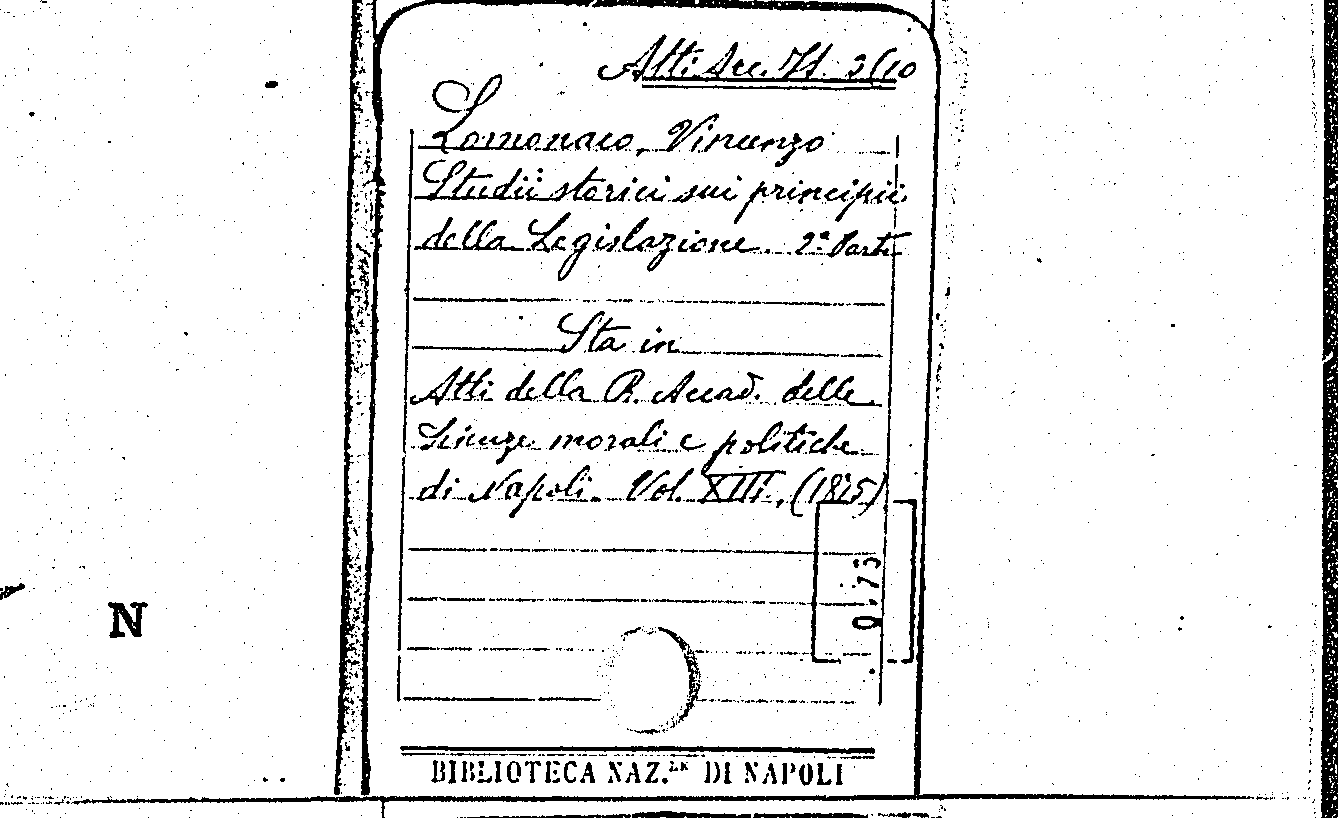 Atti Acc. It. 3(10
Lomonaco, Vincenzo
Studii storici sui principii
della Legislazione. 2ª Parte
Sta in
Atti della R. Accad. delle
Scienze morali e politiche
di Napoli. Vol. XIII, (1875)
N
BIBLIOTECA NAZ.LE DI NAPOLI